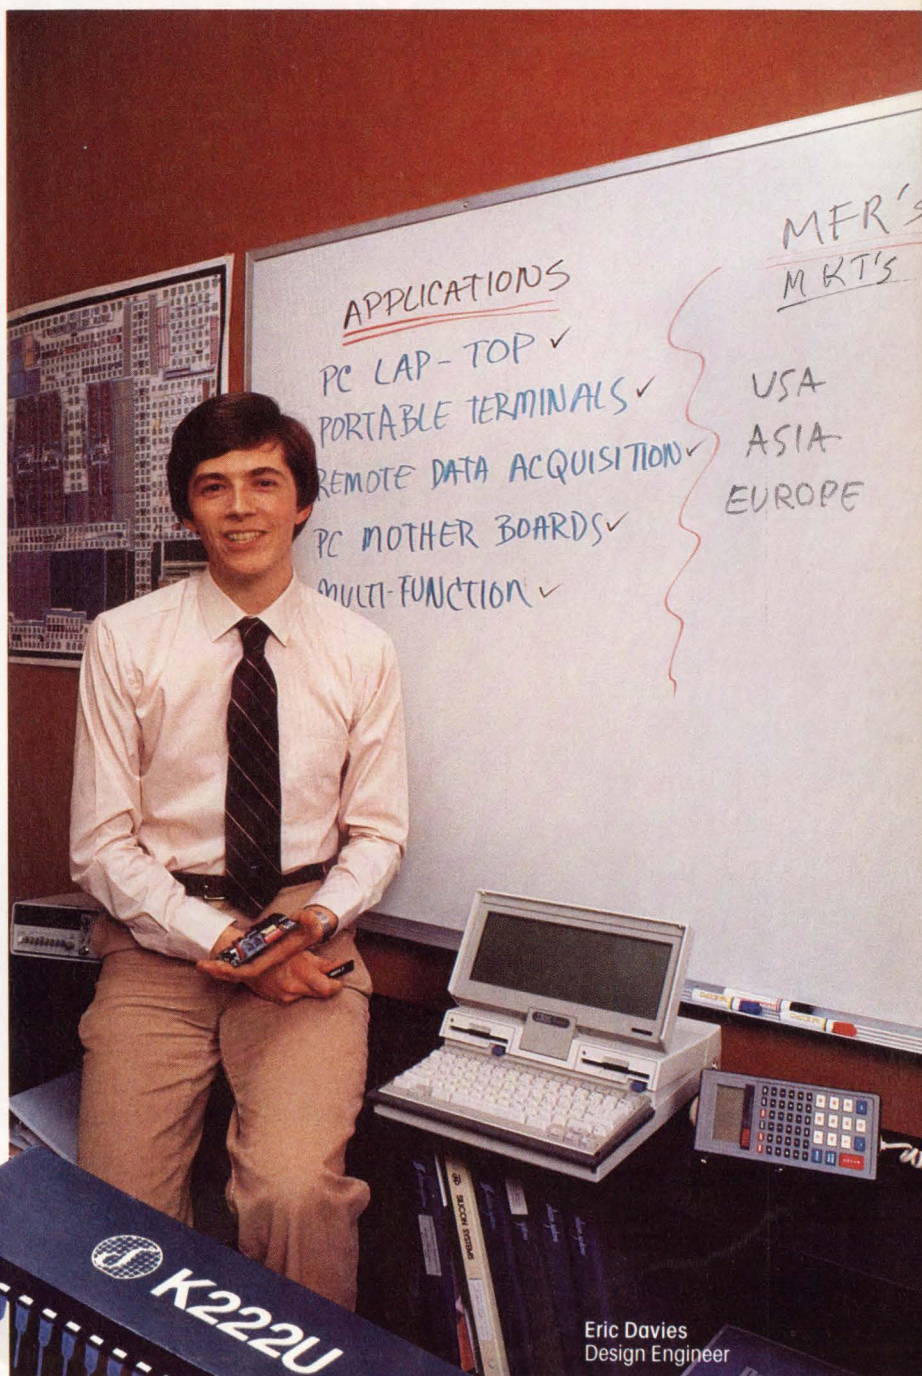 APPLICATIONS
PC LAP-TOP ✓
PORTABLE TERMINALS ✓
REMOTE DATA ACQUISITION ✓
PC MOTHER BOARDS ✓
MULTI-FUNCTION ✓
MFR'S
MKT'S
USA
ASIA
EUROPE
SILICON SYSTEMS
K222U
Eric Davies
Design Engineer